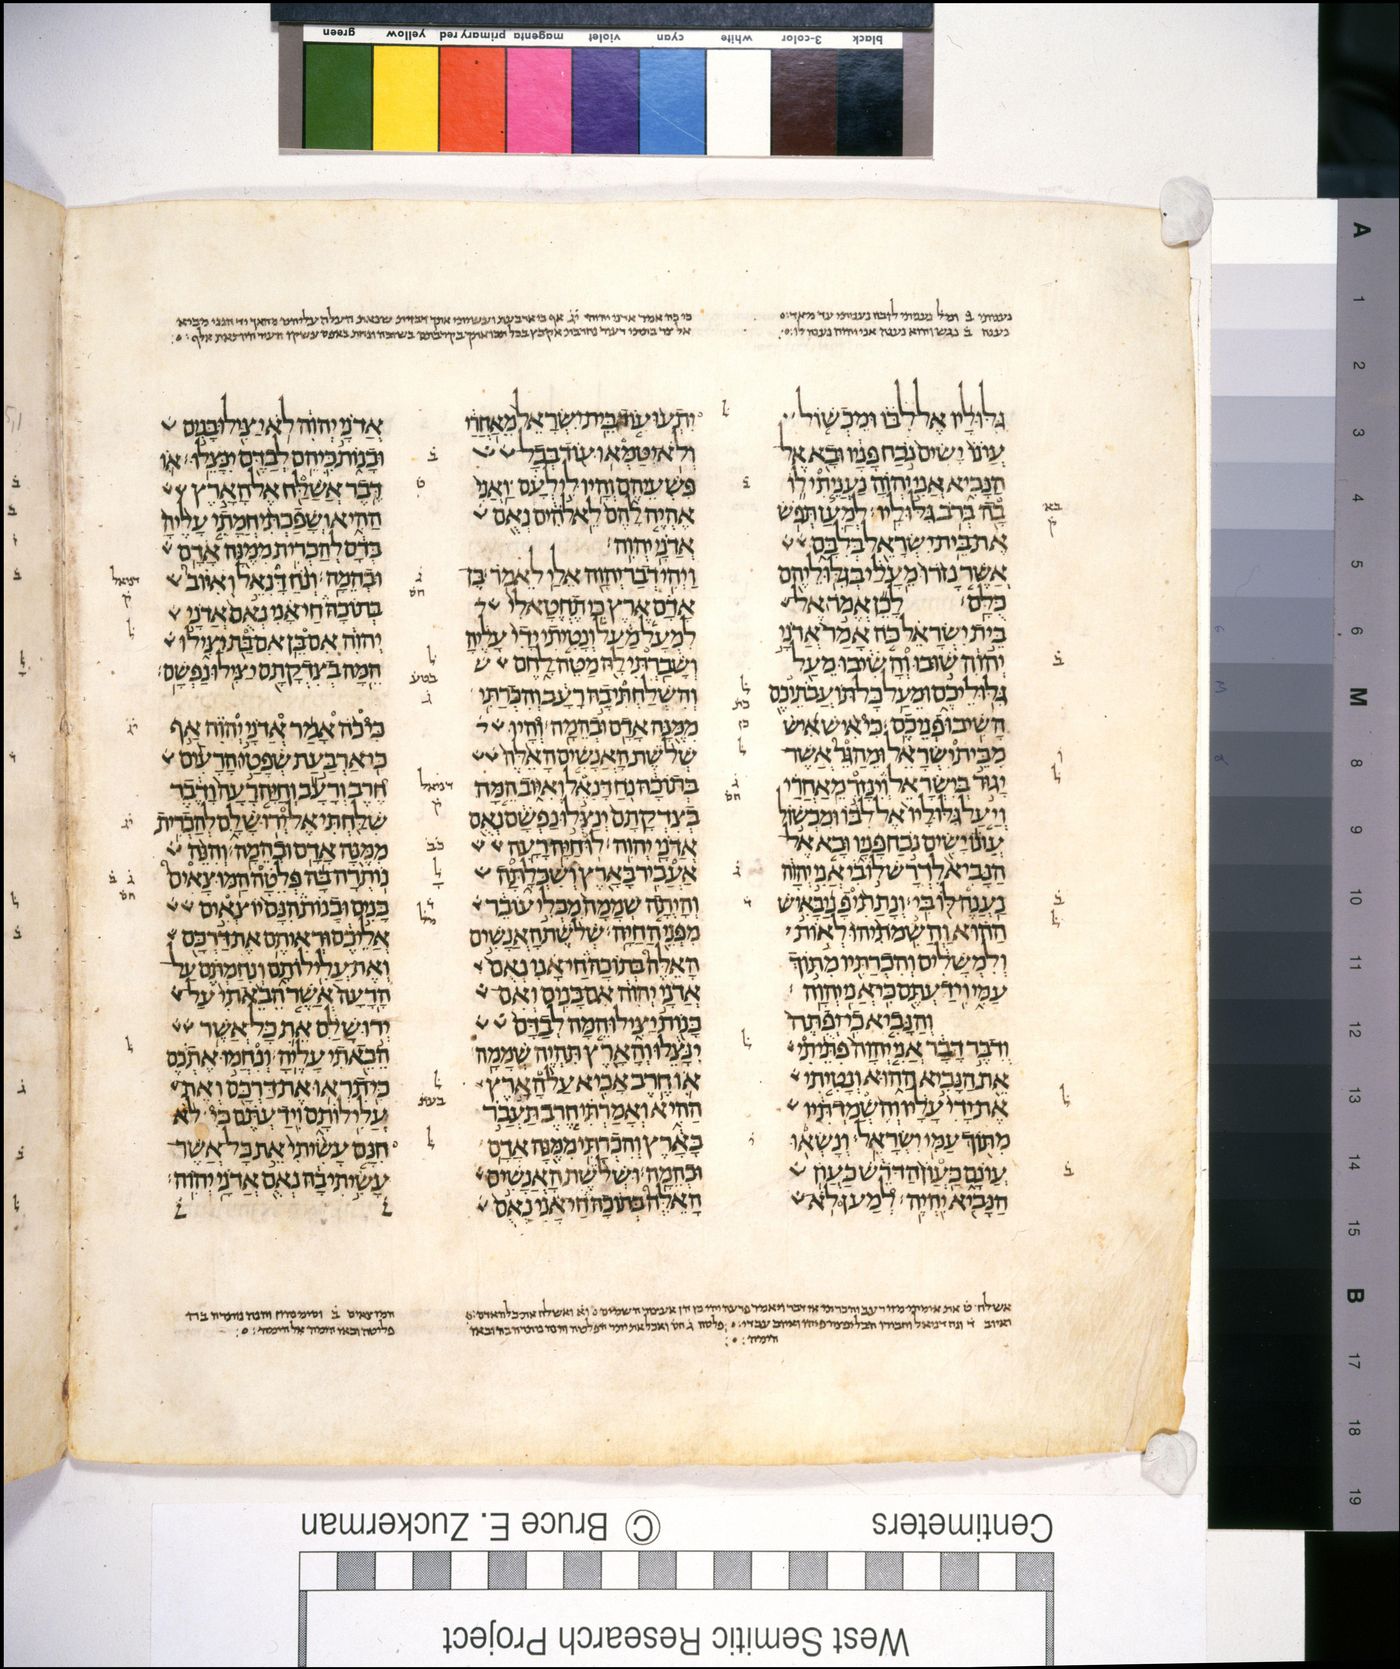 green yellow primary red magenta violet cyan white 3-color black
נענה ב נגש והוא נענה אני יהוה נענה לו
גלוליו אל לבו ומכשול
עונו ישים נכח פניו ובא אל
הנביא אני יהוה נעניתי לו
בה ברב גלוליו׃ למען תפש
את בית ישראל בלבם
אשר נזרו מעלי בגלוליהם
כלם׃ לכן אמר אל
בית ישראל כה אמר אדני
יהוה שובו והשיבו מעל
גלוליכם ומעל כל תועבתיכם
השיבו פניכם׃ כי איש איש
מבית ישראל ומהגר אשר
יגור בישראל וינזר מאחרי
ויעל גלוליו אל לבו ומכשול
עונו ישים נכח פניו ובא אל
הנביא לדרש לו בי אני יהוה
נענה לו בי׃ ונתתי פני באיש
ההוא והשמתיהו לאות
ולמשלים והכרתיו מתוך
עמי וידעתם כי אני יהוה׃
והנביא כי יפתה
ודבר דבר אני יהוה פתיתי
את הנביא ההוא ונטיתי
את ידי עליו והשמדתיו
מתוך עמי ישראל׃ ונשאו
עונם כעון הדרש כעון
הנביא יהיה׃ למען לא
יתעו עוד בית ישראל מאחרי
ולא יטמאו עוד בכל
פשעיהם והיו לי לעם ואני
אהיה להם לאלהים נאם
אדני יהוה׃
ויהי דבר יהוה אלי לאמר׃ בן
אדם ארץ כי תחטא לי
למעל מעל ונטיתי ידי עליה
ושברתי לה מטה לחם
והשלחתי בה רעב והכרתי
ממנה אדם ובהמה׃ והיו
שלשת האנשים האלה
בתוכה נח דנאל ואיוב המה
בצדקתם ינצלו נפשם נאם
אדני יהוה׃ לו חיה רעה
אעביר בארץ ושכלתה
והיתה שממה מבלי עובר
מפני החיה׃ שלשת האנשים
האלה בתוכה חי אני נאם
אדני יהוה אם בנים ואם
בנות יצילו המה לבדם
ינצלו והארץ תהיה שממה׃
או חרב אביא על הארץ
ההיא ואמרתי חרב תעבר
בארץ והכרתי ממנה אדם
ובהמה׃ ושלשת האנשים
האלה בתוכה חי אני נאם
אדני יהוה לא יצילו בנים
ובנות כי הם לבדם ינצלו׃ או
דבר אשלח אל הארץ
ההיא ושפכתי חמתי עליה
בדם להכרית ממנה אדם
ובהמה׃ ונח דנאל ואיוב
בתוכה חי אני נאם אדני
יהוה אם בן אם בת יצילו
המה בצדקתם יצילו נפשם׃
כי כה אמר אדני יהוה אף
כי ארבעת שפטי הרעים
חרב ורעב וחיה רעה ודבר
שלחתי אל ירושלם להכרית
ממנה אדם ובהמה׃ והנה
נותרה בה פלטה המוצאים
בנים ובנות הנם יוצאים
אליכם וראיתם את דרכם
ואת עלילותם ונחמתם על
הרעה אשר הבאתי על
ירושלם את כל אשר
הבאתי עליה׃ ונחמו אתכם
כי תראו את דרכם ואת
עלילותם וידעתם כי לא
חנם עשיתי את כל אשר
עשיתי בה נאם אדני יהוה׃
Centimeters
© Bruce E. Zuckerman
West Semitic Research Project
A 1 2 3 4 5 6 M 8 9 10 11 12 13 14 15 B 17 18 19